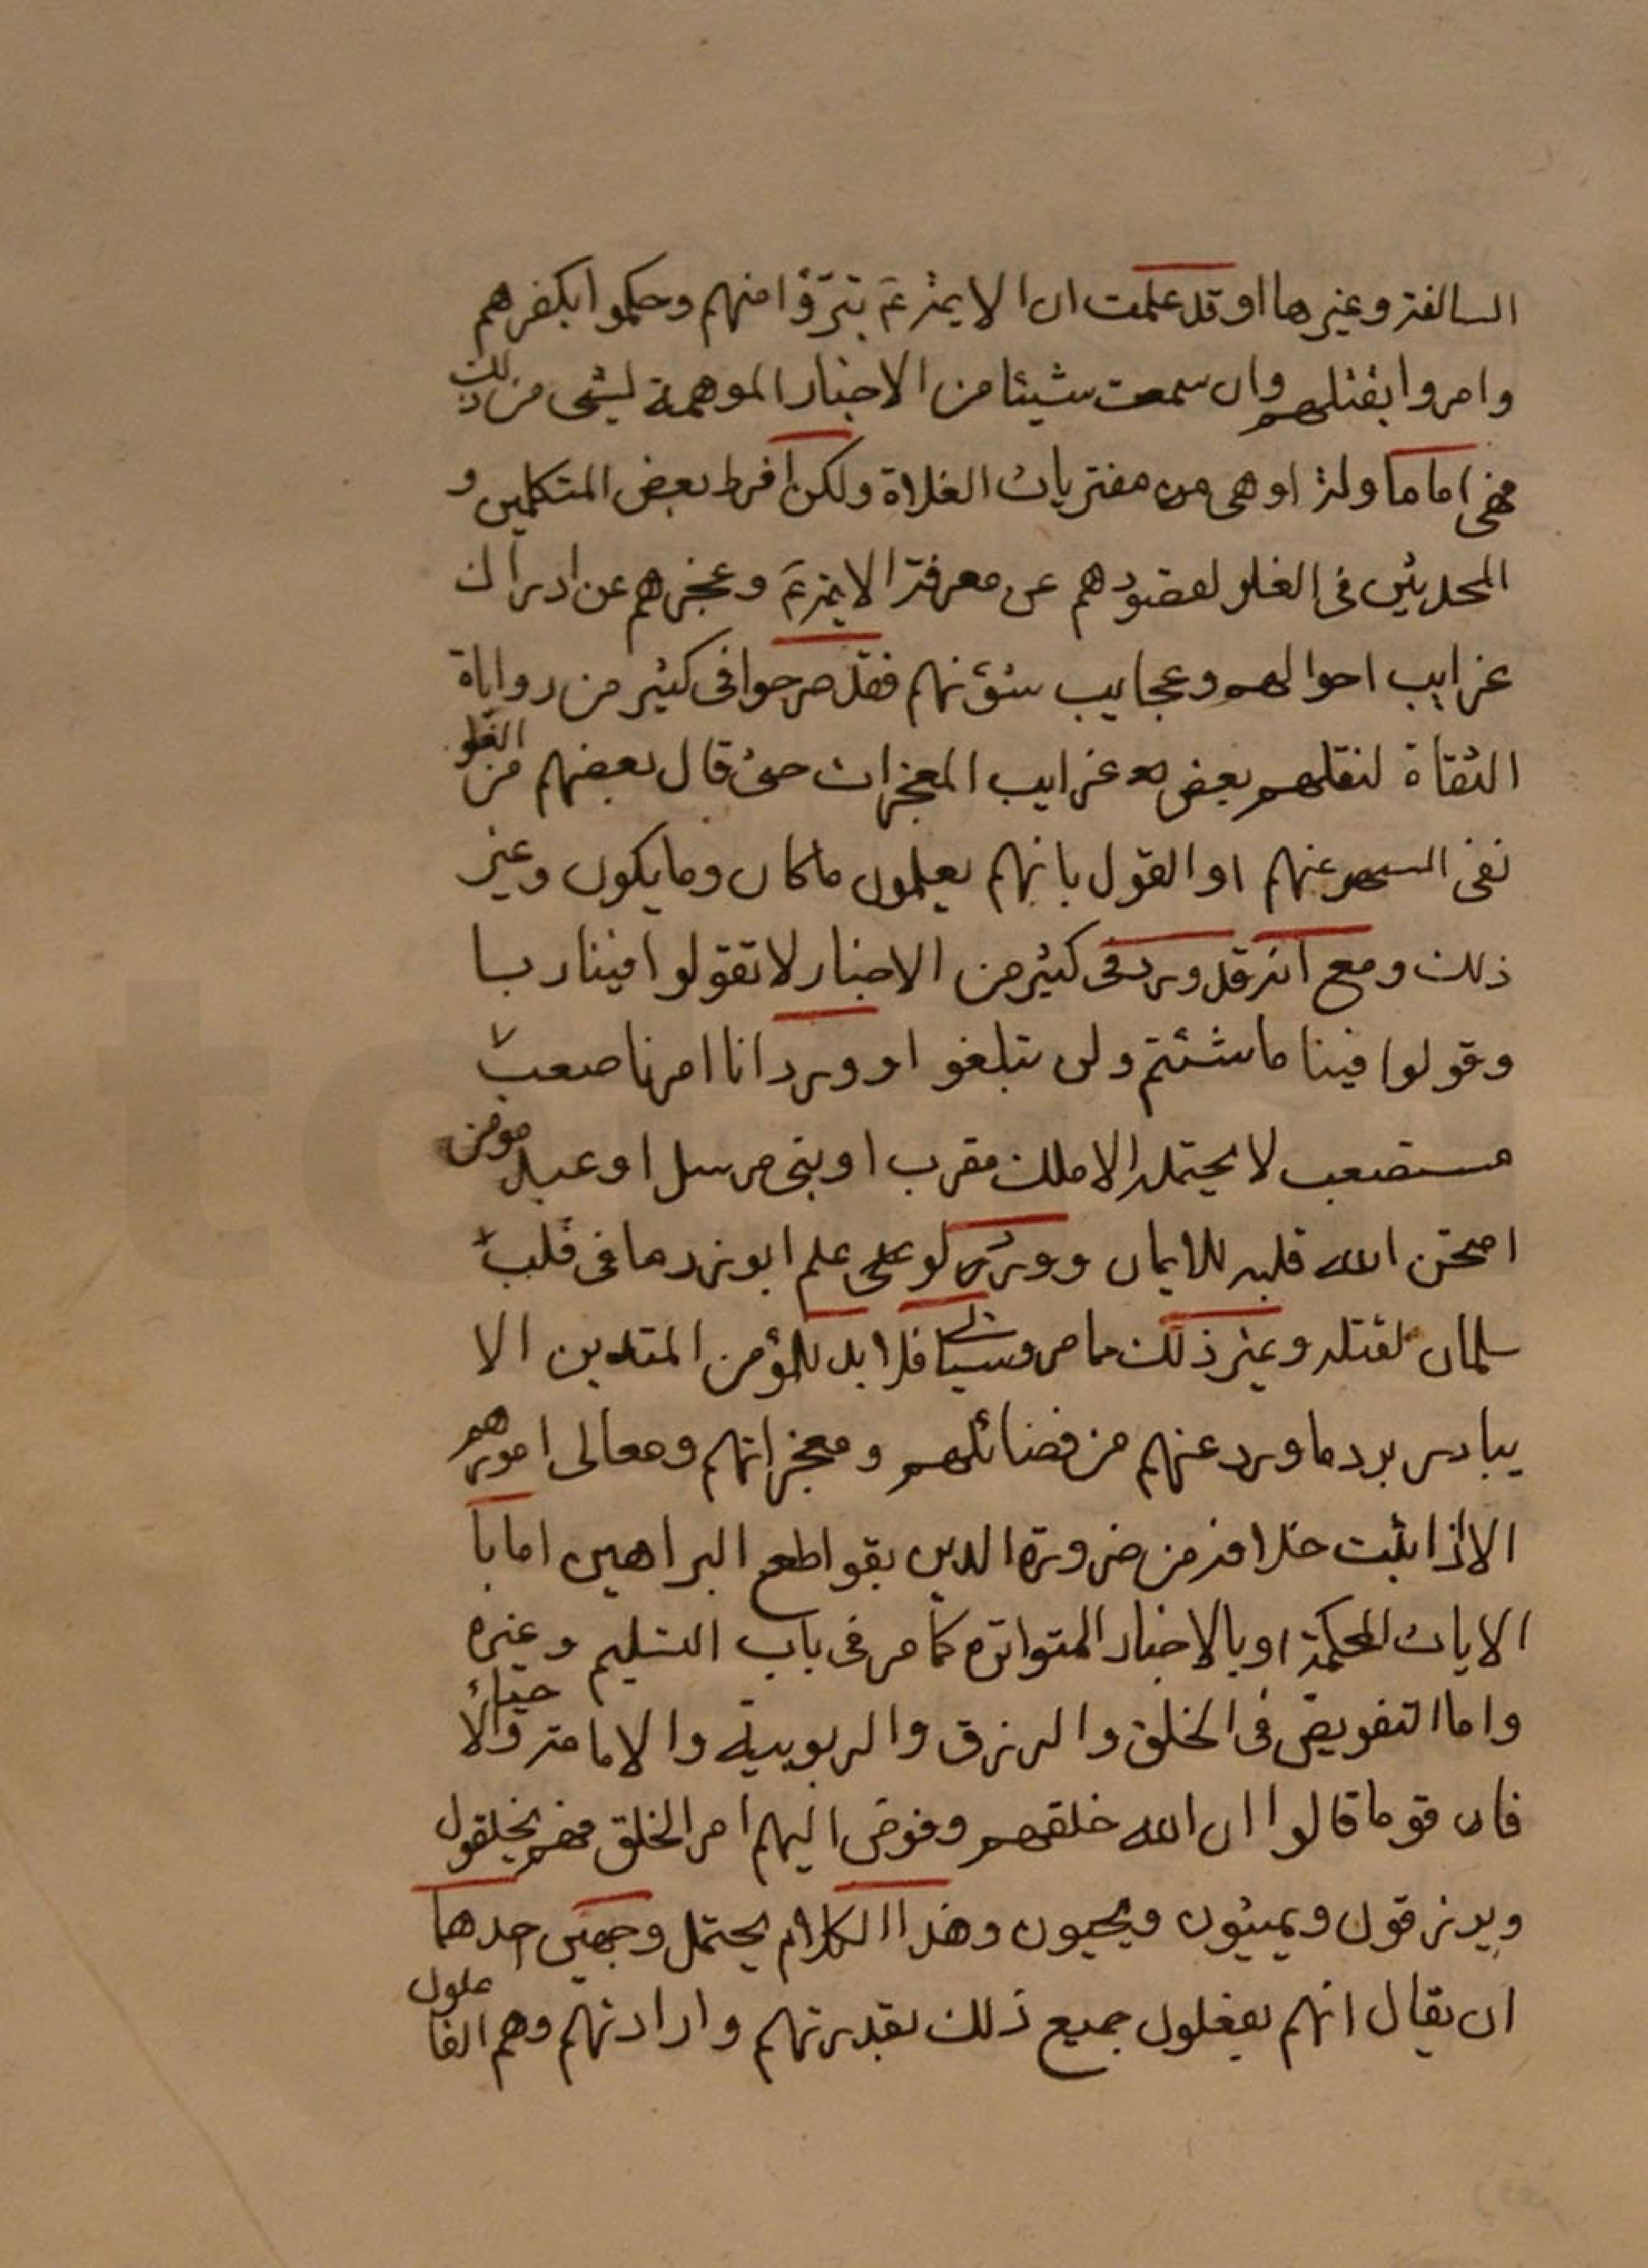 السالفة وغيرها او قد علمت ان الايمة ع تبرؤا منهم وحكموا بكفرهم
وامروا بقتلهم وان سمعت شيئا من الاخبار الموهمة لشئ من ذلك
فهى اما ماولة او هى من مفتريات الغلاة ولكن افرط بعض المتكلمين و
المحدثين فى الغلو لقصورهم عن معرفة الايمة ع وعجزهم عن ادراك
غرايب احوالهم وعجايب شؤنهم فقد صرحوا فى كثير من رواياة
الثقاة لنقلهم بعض غرايب المعجزات حتى قال بعضهم من الغلو
نفى السهو عنهم او القول بانهم يعلمون ما كان وما يكون وغير
ذلك ومع انه قد ورد فى كثير من الاخبار لا تقولوا فينا ربا
وقولوا فينا ما شئتم ولن تبلغوا وورد انا امرنا صعب
مستصعب لا يحتمله الا ملك مقرب او نبى مرسل او عبد مومن
امتحن الله قلبه للايمان وورد لو علم ابوزر ما فى قلب
سلمان لقتله وغير ذلك مما مر وسياتى فلا بد للمؤمن المتدين الا
يبادر برد ما ورد عنهم من فضائلهم ومعجزاتهم ومعالى امورهم
الا اذا ثبت خلافه من ضرورة الدين بقواطع البراهين اما با
الايات المحكمة او بالاخبار المتواتره كما مر فى باب التسليم وغيره
واما التفويض فى الخلق والرزق والربوبية والامامة والاحياء
فان قوما قالوا ان الله خلقهم وفوض اليهم امر الخلق فهم يخلقون
ويرزقون ويميتون ويحيون وهذا الكلام يحتمل وجهين احدهما
ان يقال انهم يفعلون جميع ذلك بقدرتهم وارادتهم وهم الفاعلون